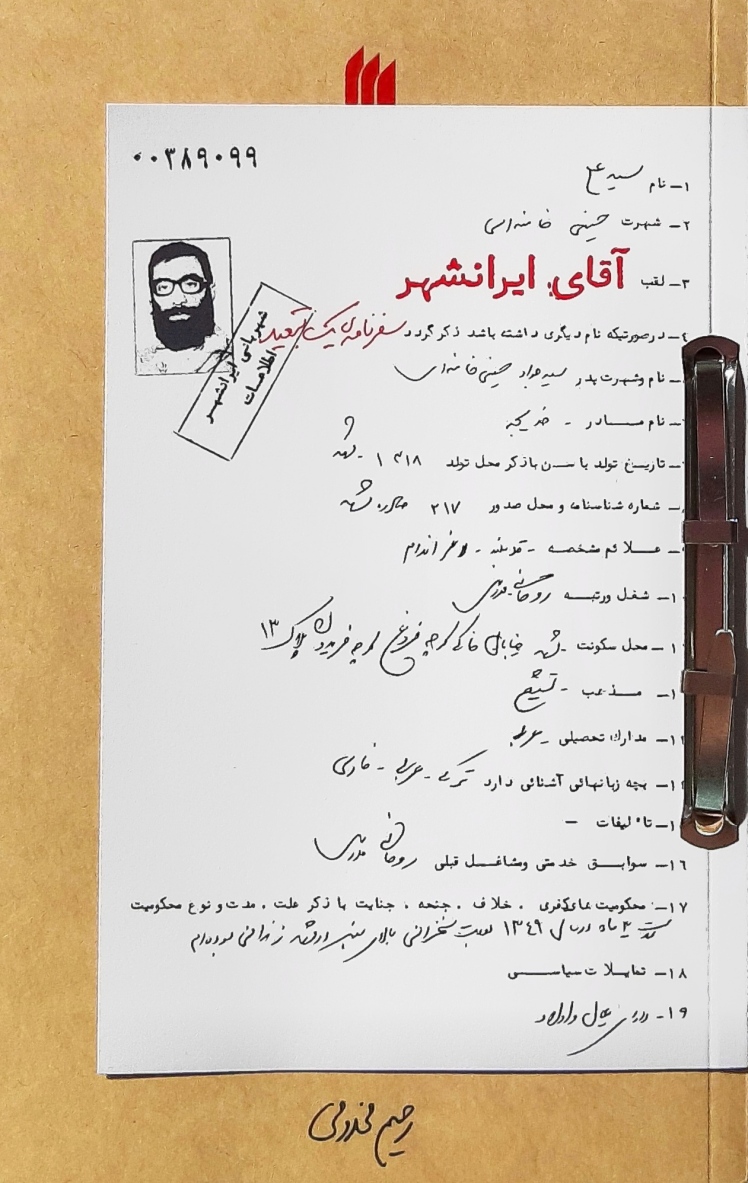 ۰۰۳۸۹۰۹۹
۱ــ نام سید علی
۲ــ شهرت حسینی خامنه‌ای
۳ــ لقب آقای ایرانشهر
٤ــ درصورتیکه نام دیگری داشته باشد ذکر گردد سفرنامه‌ی یک تبعید
شهربانی ایرانشهر
اطلاعات
ــ نام وشهرت پدر سید جواد حسینی خامنه‌ای
ــ نام مادر - خدیجه
ــ تاریخ تولد با سن باذکر محل تولد ۱۳۱۸ - مشهد
ــ شماره شناسنامه و محل صدور ۲۱۷ صادره مشهد
ــ علائم مشخصه - قد بلند - لاغر اندام
۱ــ شغل ورتبه روحانی - مدرس
۱ــ محل سکونت - مشهد خیابان خاکی کوچه فروغ کوچه فریدون پلاک ۱۳
۱ــ مذهب - تشیع
۱ــ مدارک تحصیلی - عربی
۱ــ بچه زبانهائی آشنائی دارد ترکی - عربی - فارسی
۱ــ تالیفات -
۱۶ــ سوابق خدمتی ومشاغل قبلی روحانی مدرس
۱۷ــ محکومیت های کیفری ، خلاف ، جنحه ، جنایت با ذکر علت ، مدت و نوع محکومیت
مدت ماه در سال ۱۳٤۹ سخنرانی بالای منبر در مشهد زندانی بوده‌ام
۱۸ــ تمایلات سیاسی
۱۹ــ دارای عیال و اولاد
رحیم مخدومی